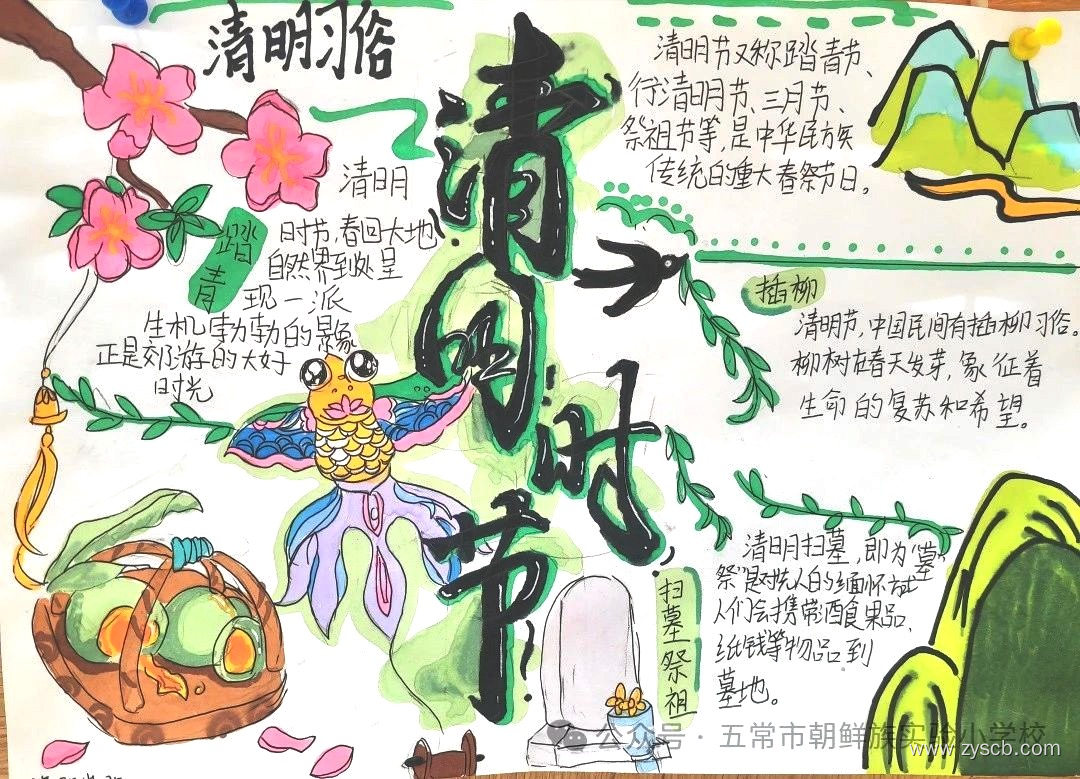 清明习俗
清明时节
清明节又称踏青节、
行清明节、三月节、
祭祖节等，是中华民族
传统的重大春祭节日。
踏青
清明
时节，春回大地
自然界到处呈
现一派
生机勃勃的景象
正是郊游的大好
时光
插柳
清明节，中国民间有插柳习俗。
柳树在春天发芽，象征着
生命的复苏和希望。
扫墓祭祖
清明扫墓，即为“墓
祭”是对先人的缅怀
人们会携带酒食果品、
纸钱等物品到
墓地。
公众号·五常市朝鲜族实验小学校
www.zyscb.com